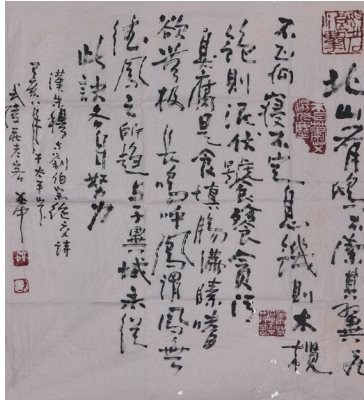 北山有鴟不潔其翼飛
不正向寢不定息飢則木欖
飽則泥伏饕餮貪污
臭腐是食填腸滿嗉嗜
欲無極長鳴呼鳳謂鳳無
德鳳之所趨与子異域永從
此訣各自努力
漢朱穆与劉伯宗絕交詩
癸亥八月于太平